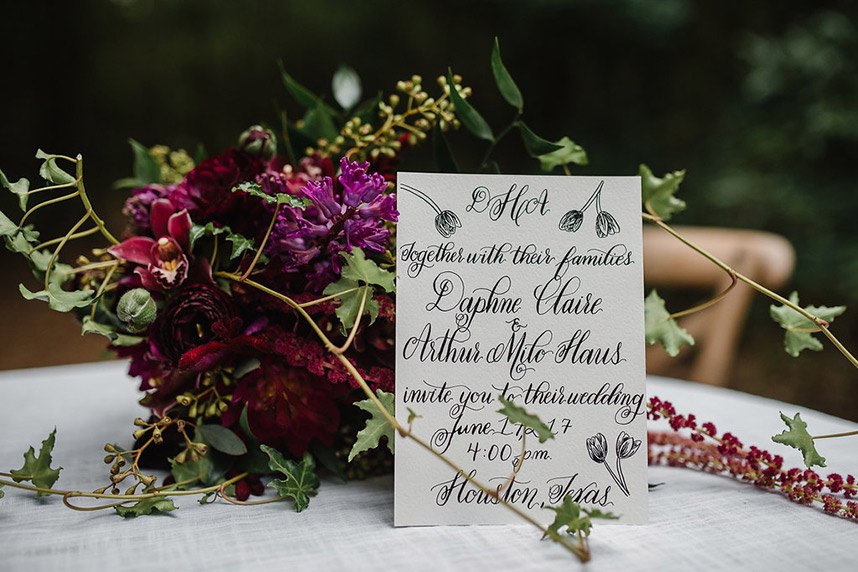 DHA
Together with their families
Daphne Claire
&
Arthur Milo Haus
invite you to their wedding
June 17 2017
4:00 p.m.
Houston, Texas